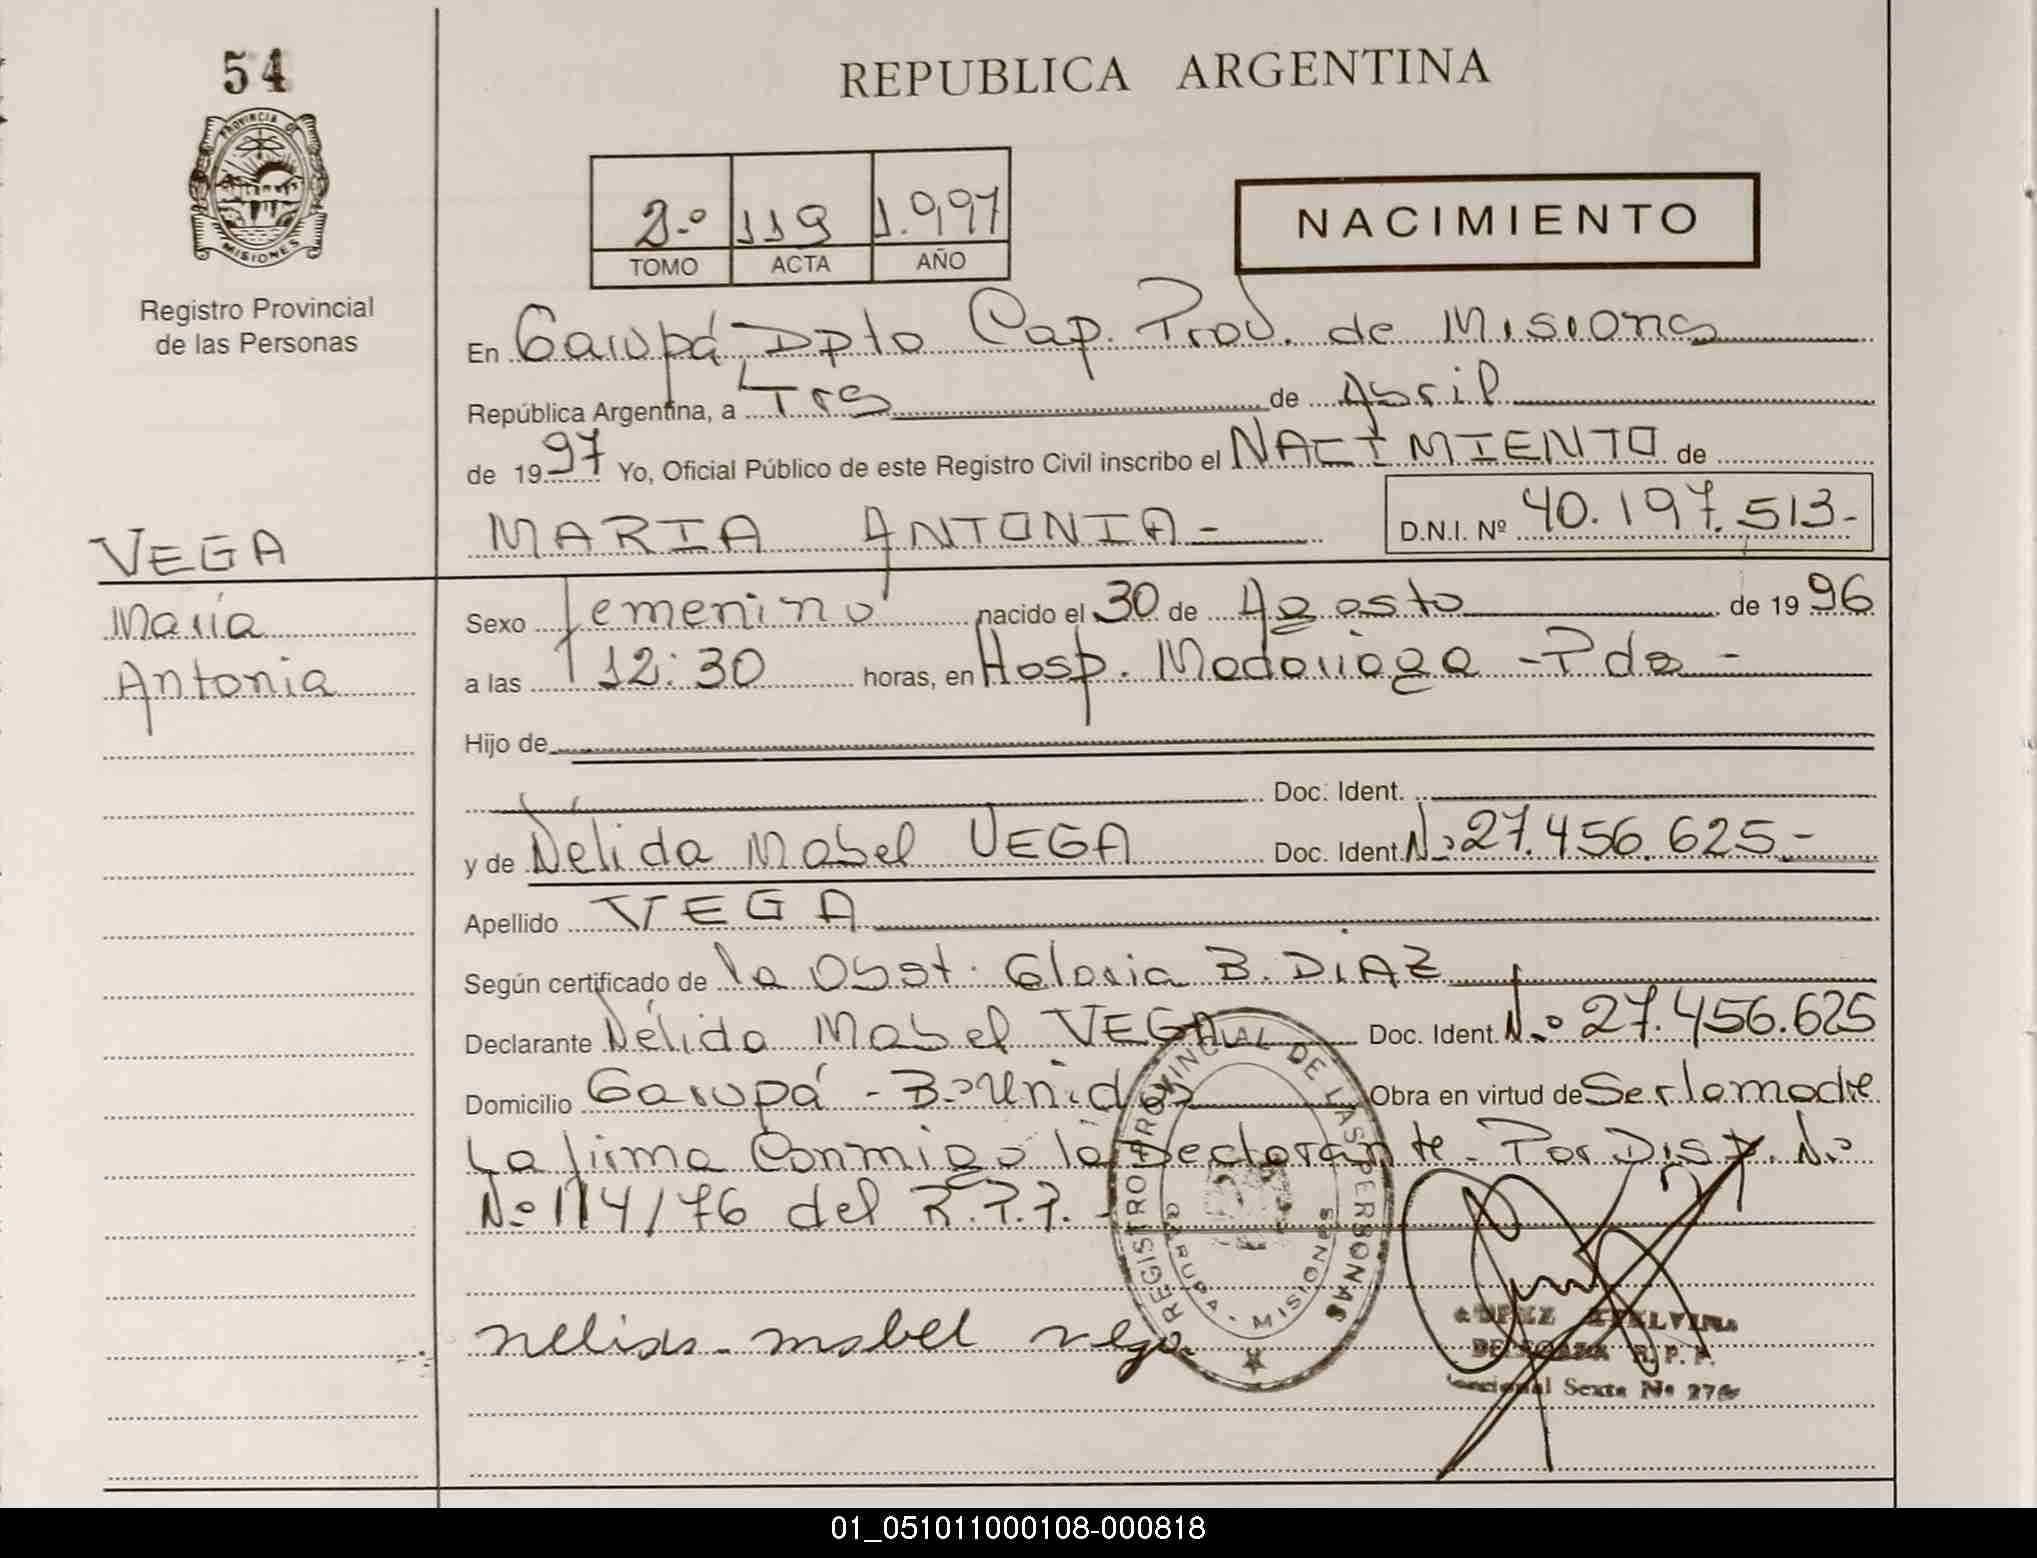 54
REPUBLICA ARGENTINA
PROVINCIA DE
MISIONES
Registro Provincial
de las Personas
2.º 119 1.997
TOMO ACTA AÑO
NACIMIENTO
En Garupá, Dpto Cap. Prov. de Misiones
República Argentina, a Tres de Abril
de 1997 Yo, Oficial Público de este Registro Civil inscribo el NACIMIENTO de
MARIA ANTONIA - D.N.I. Nº 40.197.513-
VEGA
María
Antonia
Sexo femenino nacido el 30 de Agosto de 1996
a las 12:30 horas, en Hosp. Madariaga - Pdas -
Hijo de
Doc. Ident.
y de Nélida Mabel VEGA Doc. Ident. Nº 27.456.625-
Apellido VEGA
Según certificado de la Obst. Gloria B. DIAZ
Declarante Nélida Mabel VEGA Doc. Ident. Nº 27.456.625
Domicilio Garupá - Bº Unidos Obra en virtud de Ser la madre
La firma Conmigo la Declarante - Por Disp. Nº
Nº 114/76 del R.P.P. -
REGISTRO PROVINCIAL DE LAS PERSONAS
GARUPA - MISIONES
nelida mabel vega
ETELVINA
DELEGADA R. P. P.
Seccional Sexta Nº 276
01_051011000108-000818